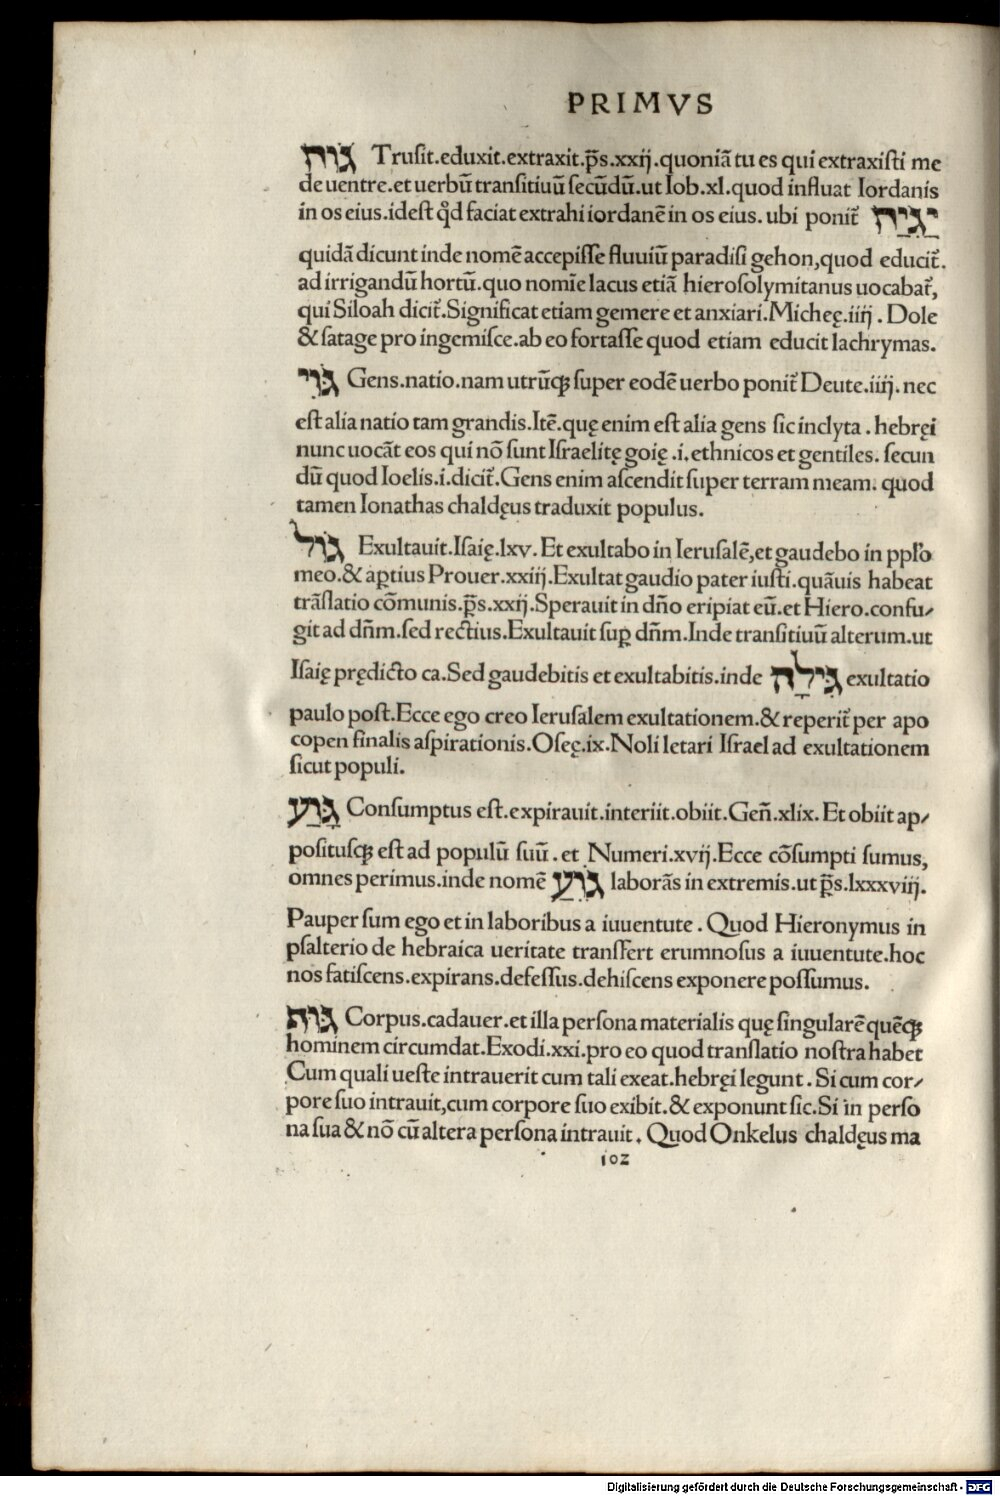 PRIMVS
גּוֹח Truſit.eduxit.extraxit.p̃s.xxij.quoniã tu es qui extraxiſti me
de uentre.et uerbũ tranſitiuũ ſecũdũ.ut Iob.xl.quod influat Iordanis
in os eius.ideſt q̃d faciat extrahi iordanẽ in os eius. ubi ponit̃ יָגִיַח
quidã dicunt inde nomẽ accepiſſe fluuiũ paradiſi gehon,quod educit̃.
ad irrigandũ hortũ.quo nomĩe lacus etiã hieroſolymitanus uocabat̃,
qui Siloah dicit̃.Significat etiam gemere et anxiari.Micheę.iiij . Dole
& ſatage pro ingemiſce.ab eo fortaſſe quod etiam educit lachrymas.
גּוֹי Gens.natio.nam utrũqꝫ ſuper eodẽ uerbo ponit̃ Deute.iiij. nec
eſt alia natio tam grandis.Itẽ.quę enim eſt alia gens ſic inclyta . hebręi
nunc uocãt eos qui nõ ſunt Iſraelitę goię .i. ethnicos et gentiles. ſecun
dũ quod Ioelis.i.dicit̃.Gens enim aſcendit ſuper terram meam. quod
tamen Ionathas chaldęus traduxit populus.
גּוֹל Exultauit.Iſaię.lxv. Et exultabo in Ieruſalẽ,et gaudebo in ppl̃o
meo.& aꝑtius Prouer.xxiij.Exultat gaudio pater iuſti.quãuis habeat
trãſlatio cõmunis.p̃s.xxij.Sperauit in dño eripiat eũ.et Hiero.confu⸗
git ad dñm.ſed rectius.Exultauit ſuꝑ dñm.Inde tranſitiuũ alterum.ut
Iſaię prędicto ca.Sed gaudebitis et exultabitis.inde גִּילָה exultatio
paulo poſt.Ecce ego creo Ieruſalem exultationem.& reperit̃ per apo
copen finalis aſpirationis.Oſeę.ix.Noli letari Iſrael ad exultationem
ſicut populi.
גָּוַע Conſumptus eſt.expirauit.interiit.obiit.Geñ.xlix. Et obiit ap⸗
poſituſqꝫ eſt ad populũ ſuũ . et Numeri.xvij.Ecce cõſumpti ſumus,
omnes perimus.inde nomẽ גּוֹוֵעַ laborãs in extremis.ut p̃s.lxxxviij.
Pauper ſum ego et in laboribus a iuuentute . Quod Hieronymus in
pſalterio de hebraica ueritate tranſfert erumnoſus a iuuentute.hoc
nos fatiſcens.expirans.defeſſus.dehiſcens exponere poſſumus.
גּוּף Corpus.cadauer.et illa perſona materialis quę ſingularẽ quẽqꝫ
hominem circumdat.Exodi.xxi.pro eo quod tranſlatio noſtra habet
Cum quali ueſte intrauerit cum tali exeat.hebręi legunt . Si cum cor⸗
pore ſuo intrauit,cum corpore ſuo exibit.& exponunt ſic.Si in perſo
na ſua & nõ cũ altera perſona intrauit. Quod Onkelus chaldęus ma
102
Digitalisierung gefördert durch die Deutsche Forschungsgemeinschaft - DFG